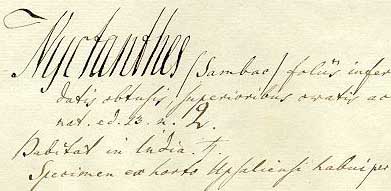 Nyctanthes (Sambac) foliis infer
datis obtusis, superioribus ovatis ac
nat. ed. 13. n. 2.
Habitat in India. ♄
Specimen ex horto Upsaliensi habui per